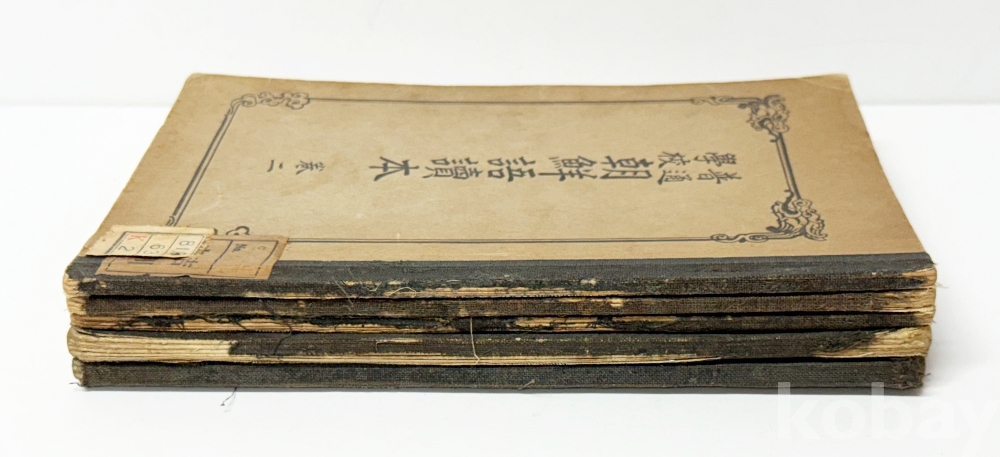 普通
學校
朝鮮語讀本
卷二
816
6
K2
kobay